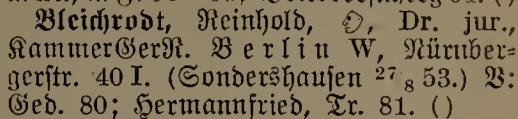 Bleichrodt, Reinhold, Dr. jur.,
KammerGerR. Berlin W, Nürnber=
gerstr. 40 I. (Sondershausen 27 8 53.) V:
Geb. 80; Hermannfried, Tr. 81. ()